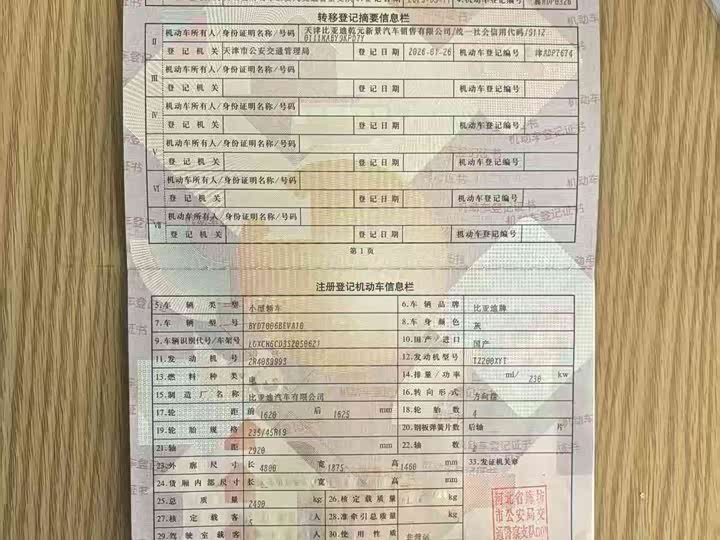 转移登记摘要信息栏
II 机动车所有人/身份证明名称/号码 天津比亚迪乾元新景汽车销售有限公司/统一社会信用代码/9112
登记机关 天津市公安交通管理局 登记日期 2026-01-26 机动车登记编号 津ADP7674
III 机动车所有人/身份证明名称/号码
登记机关 登记日期 机动车登记编号
IV 机动车所有人/身份证明名称/号码
登记机关 登记日期 机动车登记编号
V 机动车所有人/身份证明名称/号码
登记机关 登记日期 机动车登记编号
VI 机动车所有人/身份证明名称/号码
登记机关 登记日期 机动车登记编号
VII 机动车所有人/身份证明名称/号码
登记机关 登记日期 机动车登记编号
第1页
注册登记机动车信息栏
5.车辆类型 小型轿车 6.车辆品牌 比亚迪牌
7.车辆型号 BYD7006BEVA10 8.车身颜色 灰
9.车辆识别代号/车架号 10.国产/进口 国产
11.发动机号 12.发动机型号 TZ200XYT
13.燃料种类 电 14.排量/功率 ml/ 230 kw
15.制造厂名称 比亚迪汽车有限公司 16.转向形式 方向盘
17.轮距 前 1620 后 1625 mm 18.轮胎数 4
19.轮胎规格 235/45R19 20.钢板弹簧片数 后轴 片
21.轴距 2920 mm 22.轴数 2
23.外廓尺寸 长 4800 宽 1875 高 1460 mm 33.发证机关章
24.货厢内部尺寸 长 宽 高 mm
25.总质量 kg 26.核定载质量 kg
27.核定载客 5 人 28.准牵引总质量 kg
29.驾驶室载客 人 30.使用性质 非营运